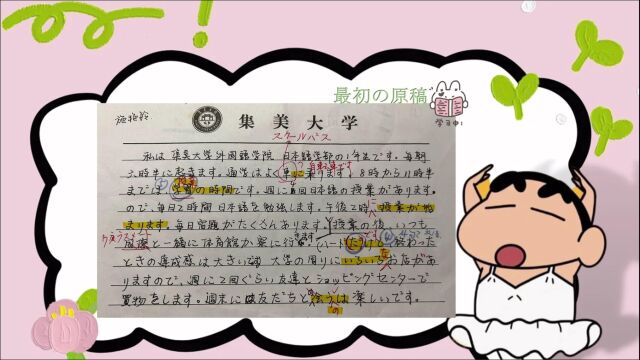 最初の原稿
学习中!
集美大学
スクールバス
私は集美大学外国語学院 日本語学部の1年生です。毎朝
六時半に起きます。通学はよく車に乗ります。8時から11時半
までは の時間です。週に 回日本語の授業があります。
ので、毎日2時間日本語を勉強します。午後2時に授業が始
まります。毎日宿題がたくさんあります。授業の後、いつも
クラスメート
と一緒に体育館か寮に行 ハート 終わった
ときの達成感は大きい 大学の周りにいろいろお店があ
りますので、週に2回ぐらい友達とショッピングセンターで
買物をします。週末に 友だちと は楽しいです。
の